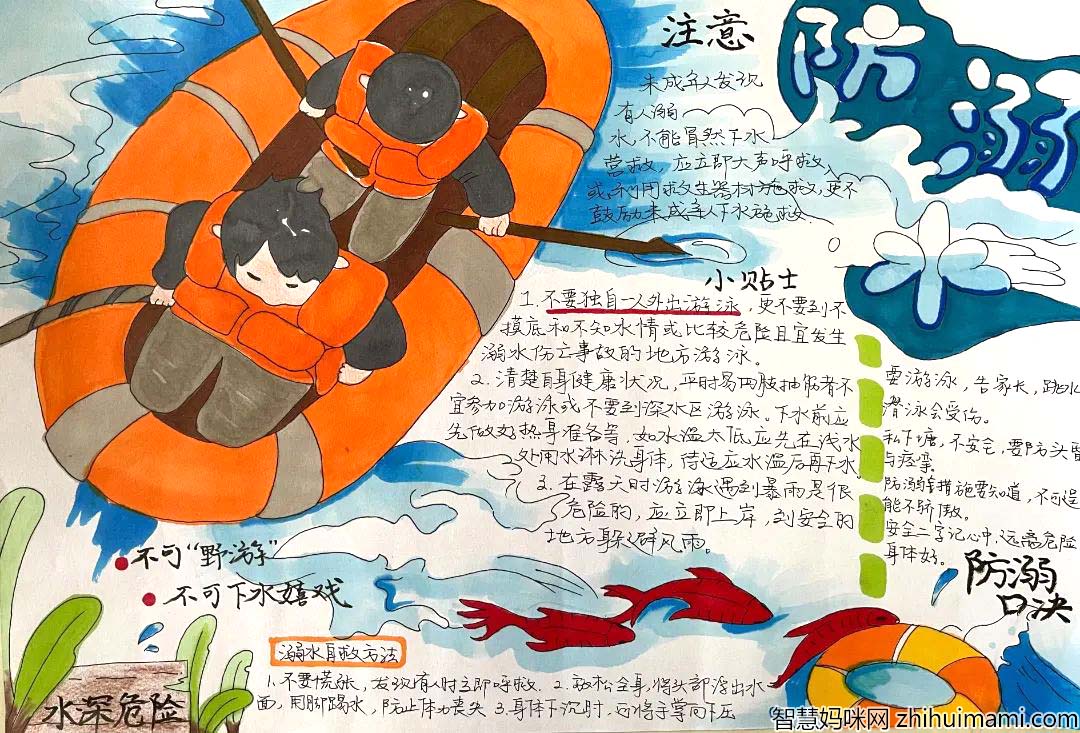 防
溺
水
注意
未成年人发现
有人溺
水,不能冒然下水
营救,应立即大声呼救
或利用救生器材施救,更不
鼓励未成年人下水施救
小贴士
1.不要独自一人外出游泳,更不要到不
摸底和不知水情或比较危险且宜发生
溺水伤亡事故的地方游泳。
2.清楚自身健康状况,平时易四肢抽筋者不
宜参加游泳或不要到深水区游泳。下水前应
先做好热身准备等,如水温太低应先在浅水
处用水淋洗身体,待适应水温后再下水
3.在露天时游泳遇到暴雨是很
危险的,应立即上岸,到安全的
地方躲避风雨。
要游泳,告家长,跳水
潜泳会受伤。
私下塘,不安全,要防头
与痉挛
防溺措施要知道,不可逞
能不骄傲。
安全二字记心中,远离危险
身体好。
防溺
口决
不可“野游”
不可下水嬉戏
溺水自救方法
1.不要慌张,发现有人时立即呼救. 2.放松全身,将头部浮出水
面,用脚踢水,防止体力丧失 3.身体下沉时,可将手掌向下压
水深危险
智慧妈咪网 zhihuimami.com